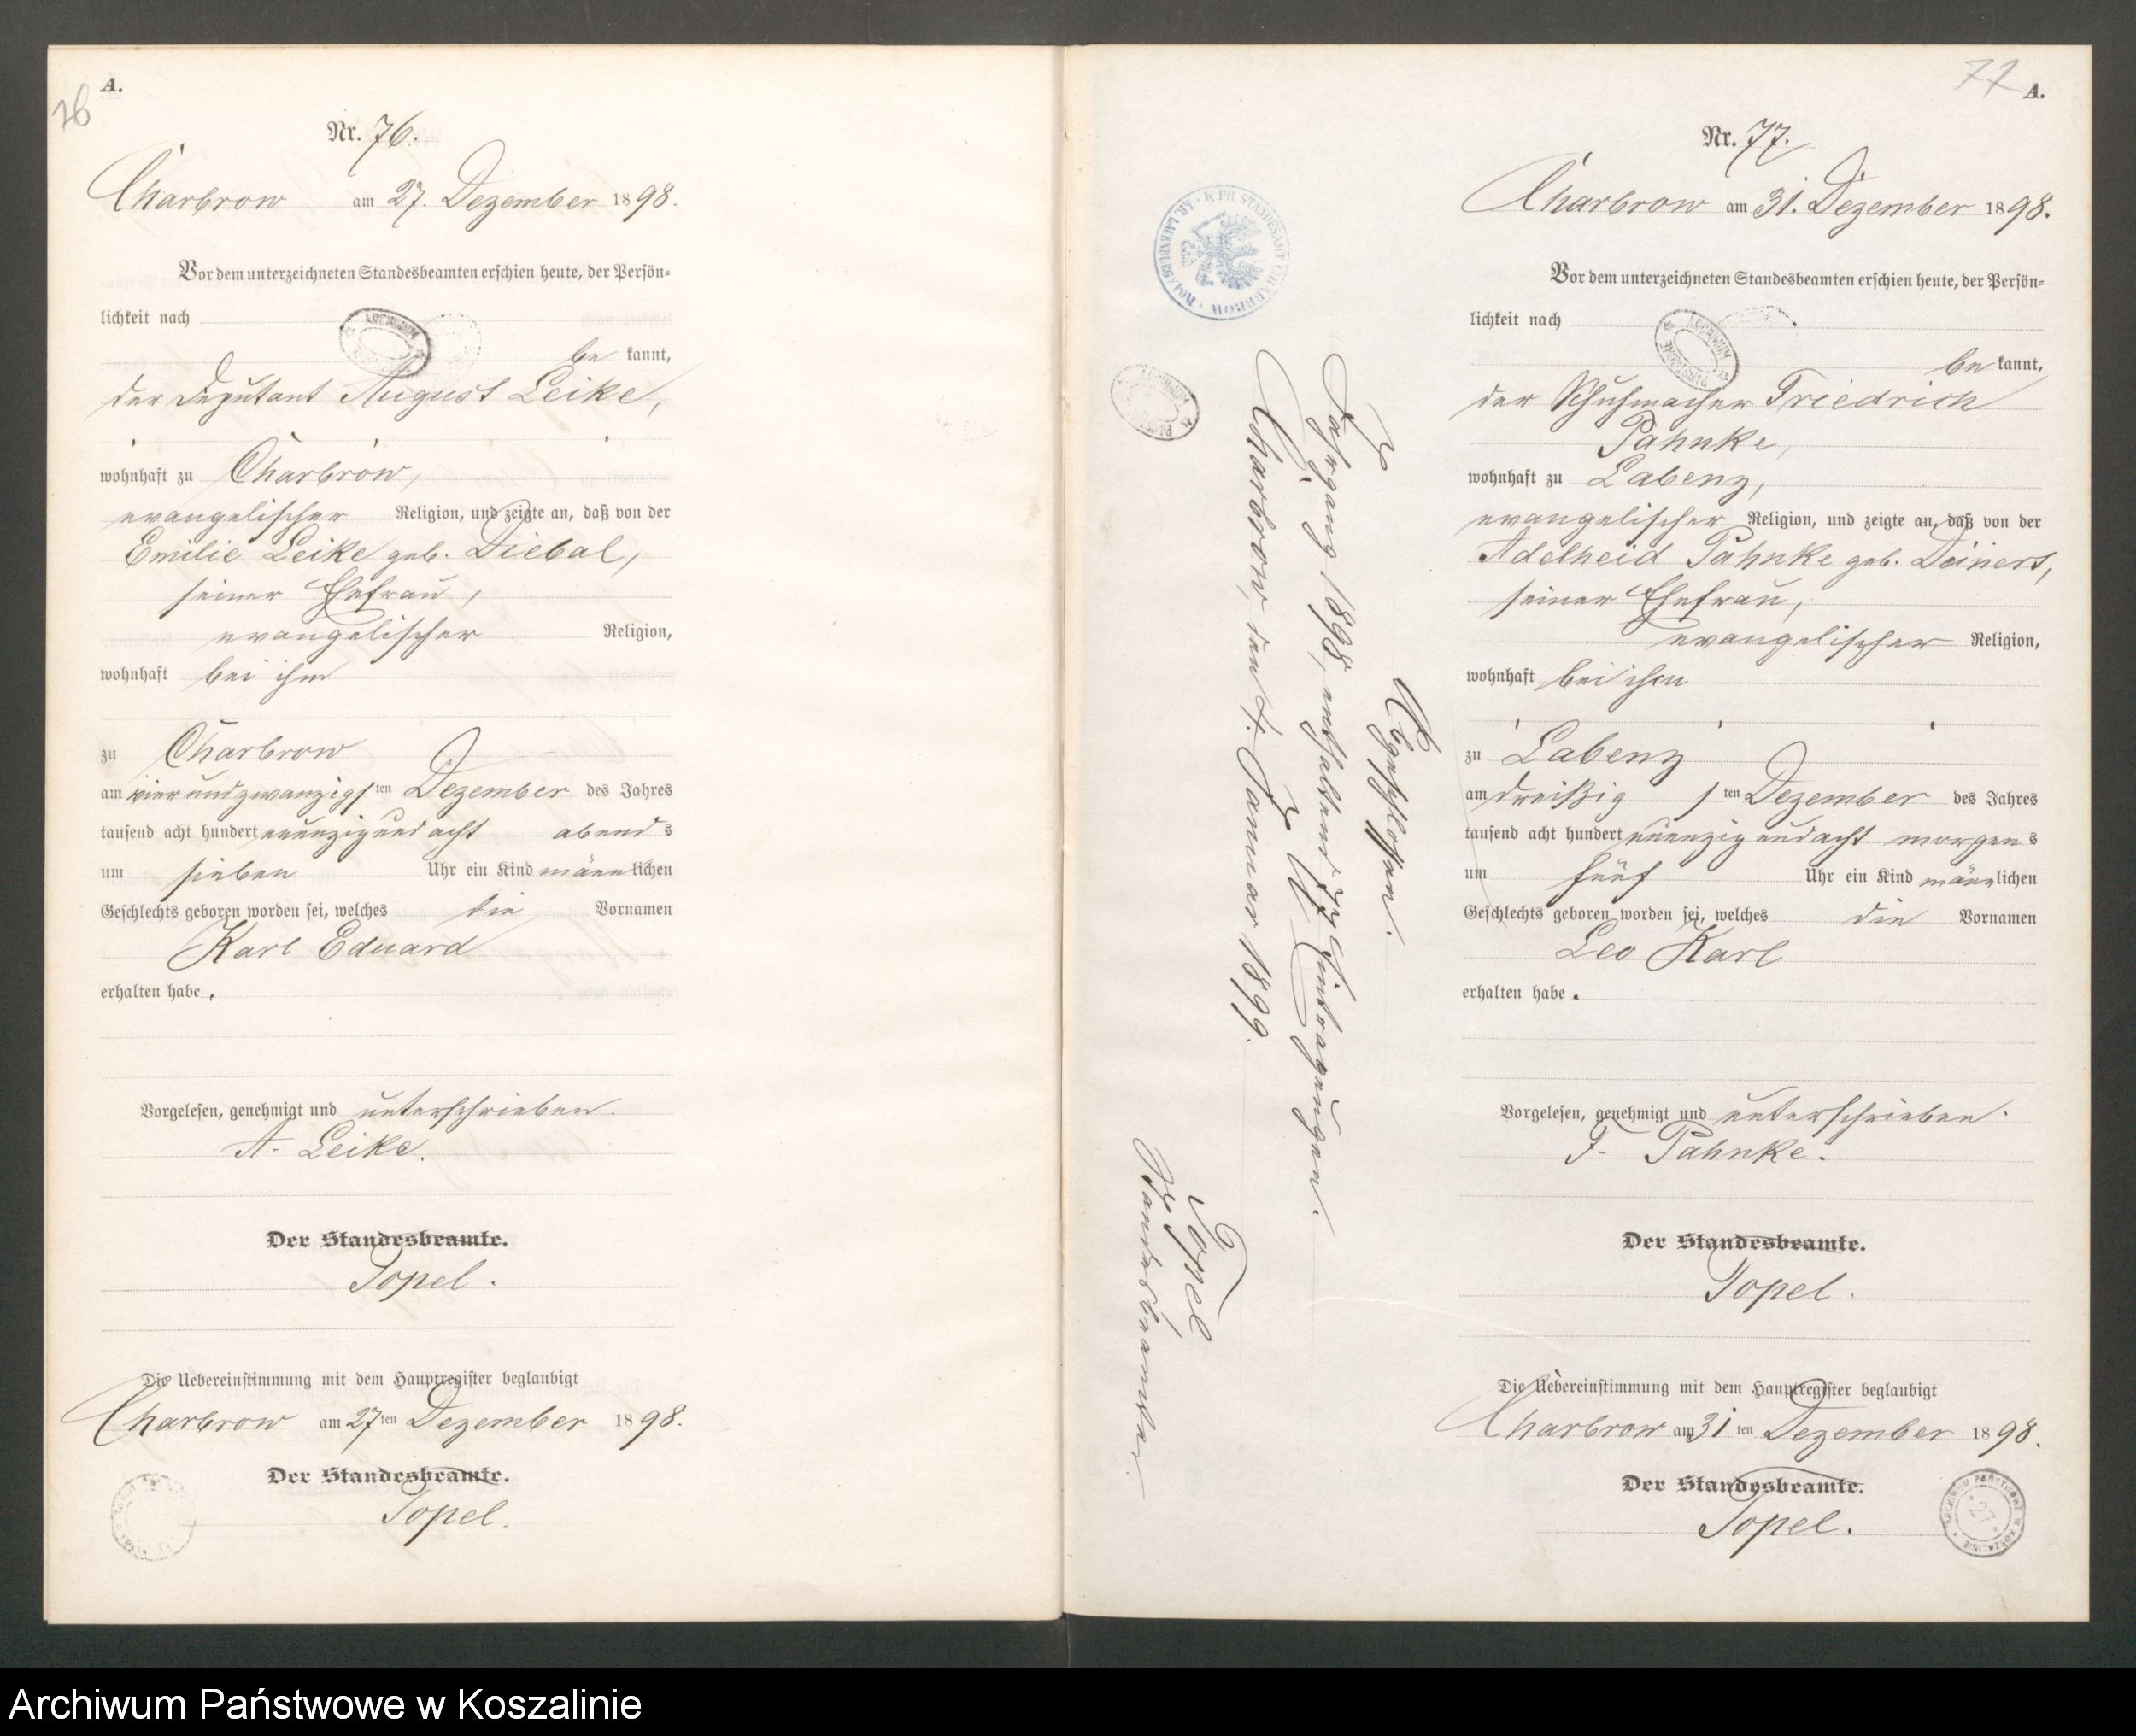 A.
76
Nr. 76.
Charbrow am 27. Dezember 1898.
Vor dem unterzeichneten Standesbeamten erschien heute, der Persön-
lichkeit nach
be kannt,
der Deputant August Leike,
wohnhaft zu Charbrow,
evangelischer Religion, und zeigte an, daß von der
Emilie Leike geb. Diebal,
seiner Ehefrau,
evangelischer Religion,
wohnhaft bei ihm
zu Charbrow
am vierundzwanzigsten Dezember des Jahres
tausend acht hundert neunzig und acht abends
um sieben Uhr ein Kind männlichen
Geschlechts geboren worden sei, welches die Vornamen
Karl Eduard
erhalten habe.
Vorgelesen, genehmigt und unterschrieben.
A. Leike.
Der Standesbeamte.
Topel.
Die Uebereinstimmung mit dem Hauptregister beglaubigt
Charbrow am 27ten Dezember 1898.
Der Standesbeamte.
Topel.
K. PR. STANDESAMT CHARBROW * KR. LAUENBURG i. POM.
Abgeschlossen.
Jahrgang 1898, enthaltend 77 Eintragungen.
Charbrow, den 1. Januar 1899.
Topel
Standesbeamter
77
A.
Nr. 77.
Charbrow am 31. Dezember 1898.
Vor dem unterzeichneten Standesbeamten erschien heute, der Persön-
lichkeit nach
be kannt,
der Schuhmacher Friedrich
Pahnke,
wohnhaft zu Labenz,
evangelischer Religion, und zeigte an, daß von der
Adelheid Pahnke geb. Deinert,
seiner Ehefrau,
evangelischer Religion,
wohnhaft bei ihm
zu Labenz
am dreißigsten Dezember des Jahres
tausend acht hundert neunzig und acht morgens
um fünf Uhr ein Kind männlichen
Geschlechts geboren worden sei, welches die Vornamen
Leo Karl
erhalten habe.
Vorgelesen, genehmigt und unterschrieben.
F. Pahnke.
Der Standesbeamte.
Topel.
Die Uebereinstimmung mit dem Hauptregister beglaubigt
Charbrow am 31ten Dezember 1898.
Der Standesbeamte.
Topel.
ARCHIWUM PAŃSTWOWE W KOSZALINIE
27
Archiwum Państwowe w Koszalinie